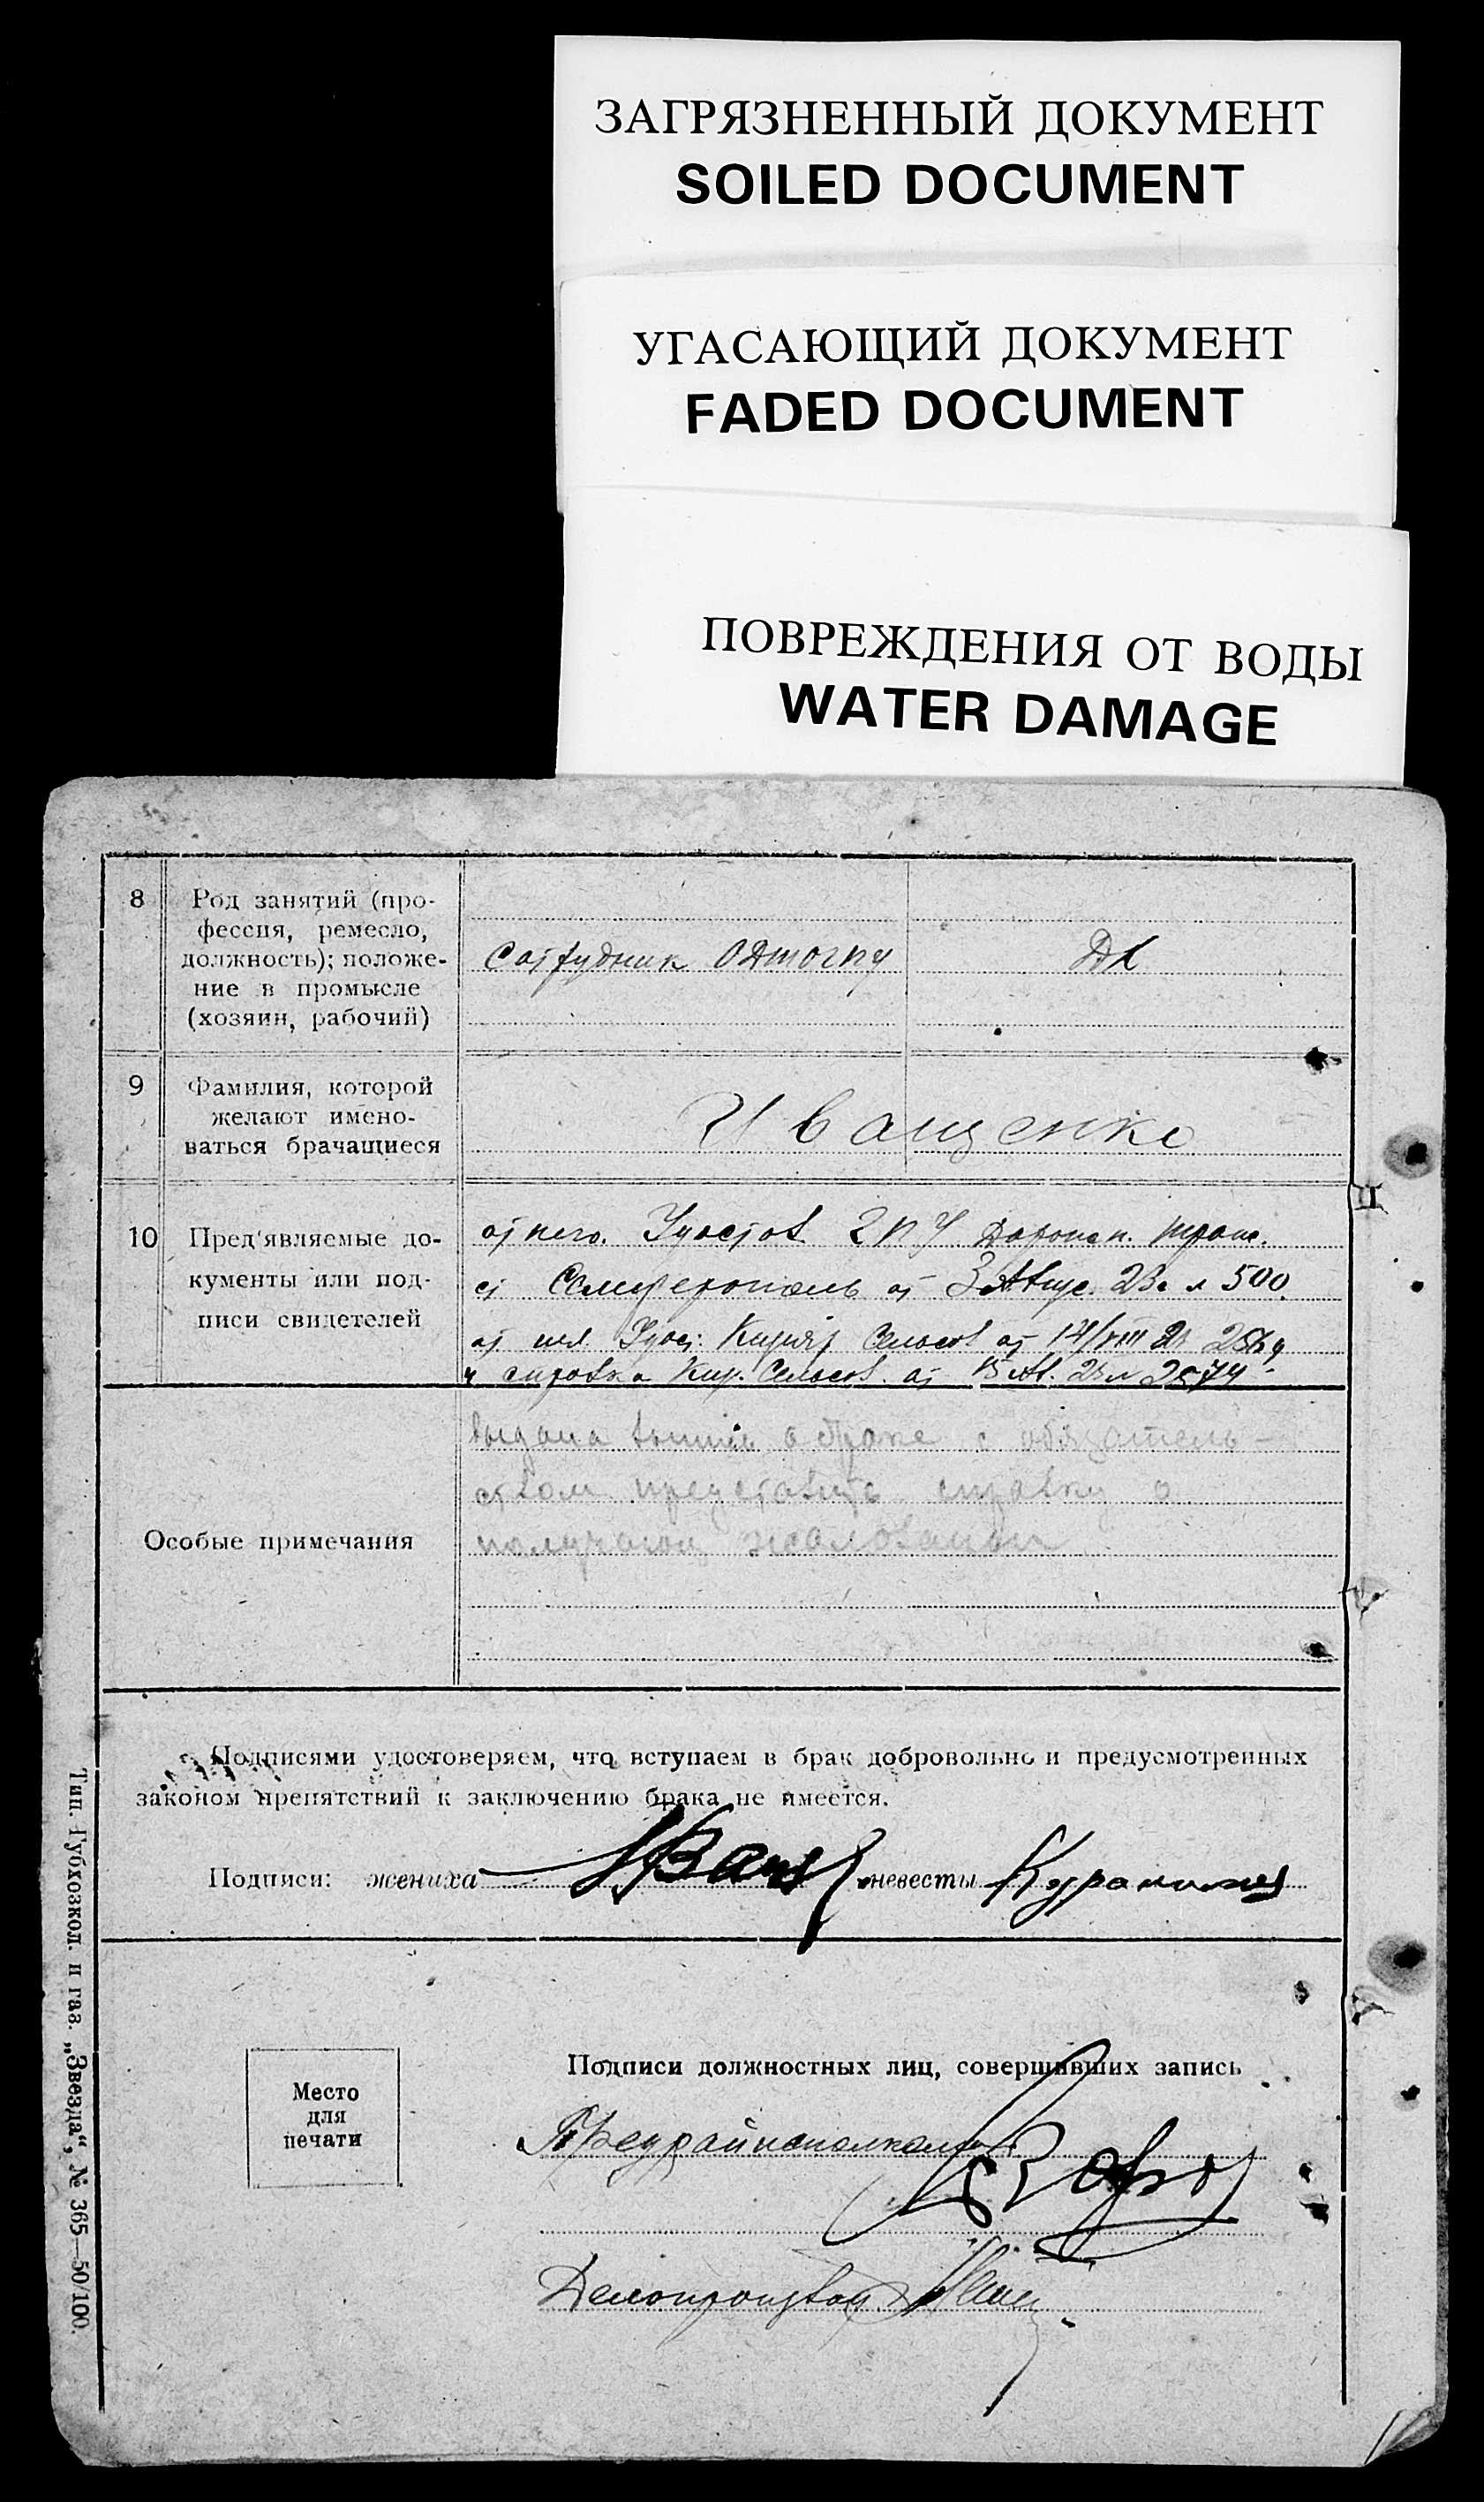 ЗАГРЯЗНЕННЫЙ ДОКУМЕНТ
SOILED DOCUMENT
УГАСАЮЩИЙ ДОКУМЕНТ
FADED DOCUMENT
ПОВРЕЖДЕНИЯ ОТ ВОДЫ
WATER DAMAGE
8
Род занятий (про-
фессия, ремесло,
должность); положе-
ние в промысле
(хозяин, рабочий)
Сотрудник ОДТОГПУ
ДХ
9
Фамилия, которой
желают имено-
ваться брачащиеся
Иващенко
10
Пред'являемые до-
кументы или под-
писи свидетелей
от него. Удостов. ГПУ
ст Симферополь от 3 Авгус. 23 г № 500.
от нея Удос: Сельсов от 14/VIII
и справка Кир. Сельсов. от
Особые примечания
выдана о браке с обязатель-
ством представить справку о
жалования
Подписями удостоверяем, что вступаем в брак добровольно и предусмотренных
законом препятствий к заключению брака не имеется.
Подписи: жениха Иващ невесты
Место
для
печати
Подписи должностных лиц, совершивших запись
Предрайисполкома
Делопроизвод
Тип. Губхозкол. и газ. „Звезда“, № 365—50/100.